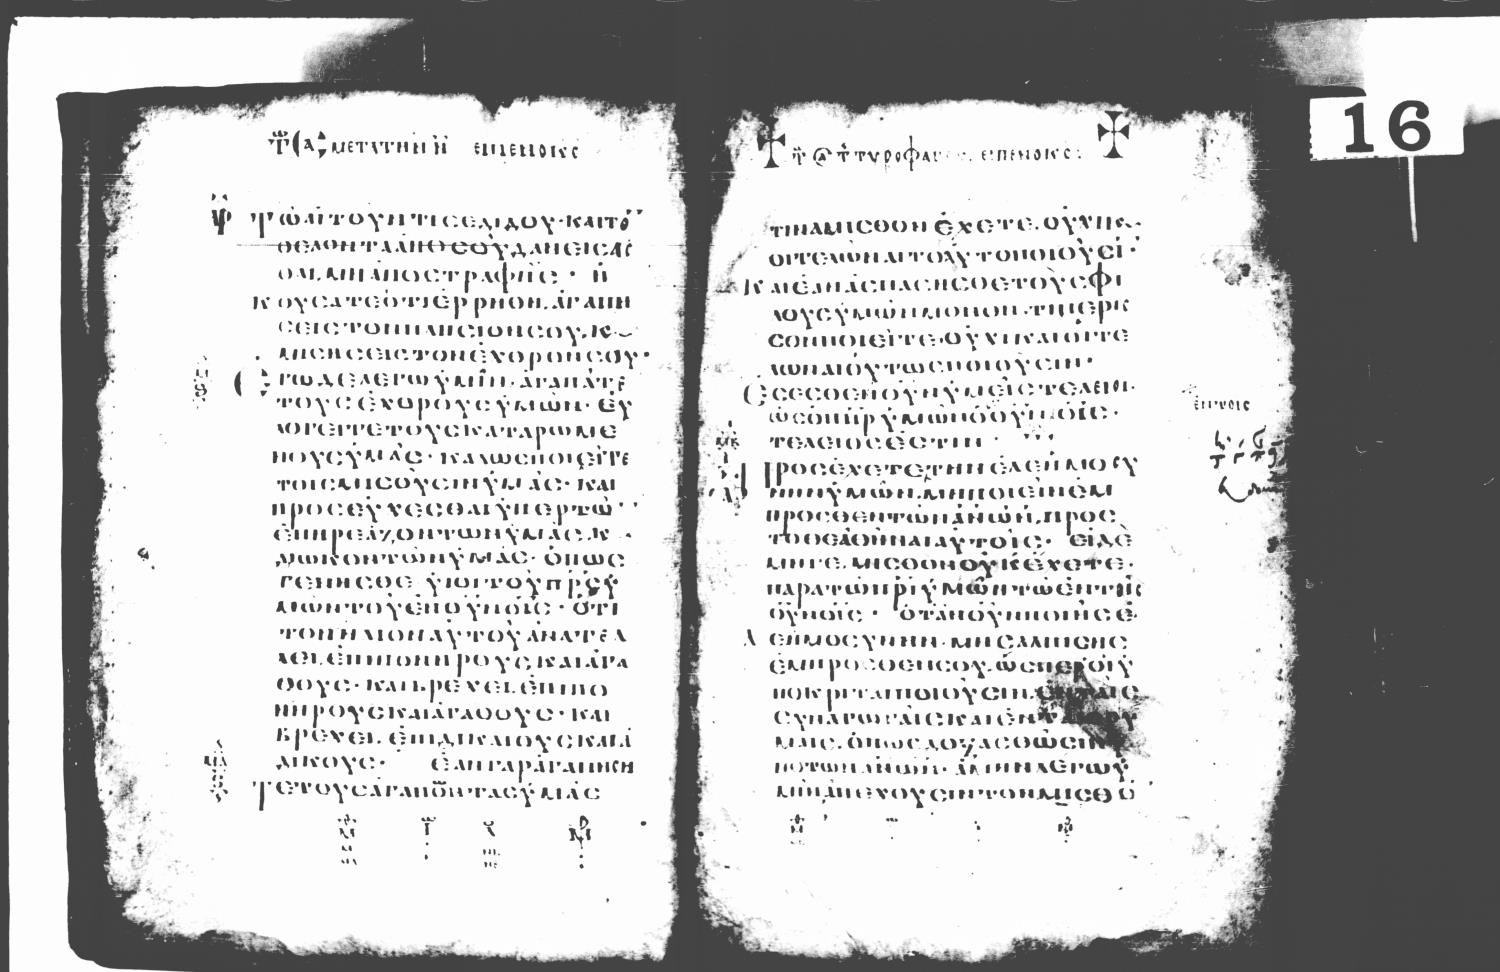 ΜΕΤΑ ΤΗΝ Ν ΕΙΠΕΝ Ο ΚϹ
ΤΩ ΑΙΤΟΥΝΤΙ ϹΕ ΔΙΔΟΥ· ΚΑΙ ΤΟ
ΘΕΛΟΝΤΑ ΑΠΟ ϹΟΥ ΔΑΝΕΙϹΑϹ
ΘΑΙ. ΜΗ ΑΠΟϹΤΡΑΦΗϹ· Η
ΚΟΥϹΑΤΕ ΟΤΙ ΕΡΡΗΘΗ. ΑΓΑΠΗ
ϹΕΙϹ ΤΟΝ ΠΛΗϹΙΟΝ ϹΟΥ. Κ
ΜΙϹΗϹΕΙϹ ΤΟΝ ΕΧΘΡΟΝ ϹΟΥ·
ΕΓΩ ΔΕ ΛΕΓΩ ΥΜΙΝ. ΑΓΑΠΑΤΕ
ΤΟΥϹ ΕΧΘΡΟΥϹ ΥΜΩΝ· ΕΥ
ΛΟΓΕΙΤΕ ΤΟΥϹ ΚΑΤΑΡΩΜΕ
ΝΟΥϹ ΥΜΑϹ· ΚΑΛΩϹ ΠΟΙΕΙΤΕ
ΤΟΙϹ ΜΙϹΟΥϹΙΝ ΥΜΑϹ· ΚΑΙ
ΠΡΟϹΕΥΧΕϹΘΑΙ ΥΠΕΡ ΤΩ
ΕΠΗΡΕΑΖΟΝΤΩΝ ΥΜΑϹ. Κ
ΔΙΩΚΟΝΤΩΝ ΥΜΑϹ· ΟΠΩϹ
ΓΕΝΗϹΘΕ ΥΙΟΙ ΤΟΥ ΠΡϹ Υ
ΜΩΝ ΤΟΥ ΕΝ ΟΥΝΟΙϹ· ΟΤΙ
ΤΟΝ ΗΛΙΟΝ ΑΥΤΟΥ ΑΝΑΤΕΛ
ΛΕΙ. ΕΠΙ ΠΟΝΗΡΟΥϹ ΚΑΙ ΑΓΑ
ΘΟΥϹ· ΚΑΙ ΒΡΕΧΕΙ. ΕΠΙ ΠΟ
ΝΗΡΟΥϹ ΚΑΙ ΑΓΑΘΟΥϹ· ΚΑΙ
ΒΡΕΧΕΙ. ΕΠΙ ΔΙΚΑΙΟΥϹ ΚΑΙ Α
ΔΙΚΟΥϹ· ΕΑΝ ΓΑΡ ΑΓΑΠΗϹΗ
ΤΕ ΤΟΥϹ ΑΓΑΠΩΝΤΑϹ ΥΜΑϹ
ΤΥΡΟΦΑΓ ΕΙΠΕΝ Ο ΚϹ:
ΤΙΝΑ ΜΙϹΘΟΝ ΕΧΕΤΕ. ΟΥΧΙ Κ
ΟΙ ΤΕΛΩΝΑΙ ΤΟ ΑΥΤΟ ΠΟΙΟΥϹΙ·
ΚΑΙ ΕΑΝ ΑϹΠΑϹΗϹΘΕ ΤΟΥϹ ΦΙ
ΛΟΥϹ ΥΜΩΝ ΜΟΝΟΝ. ΤΙ ΠΕΡΙϹ
ϹΟΝ ΠΟΙΕΙΤΕ· ΟΥΧΙ ΚΑΙ ΟΙ ΤΕ
ΛΩΝΑΙ ΟΥΤΩϹ ΠΟΙΟΥϹΙΝ·
ΕϹΕϹΘΕ ΟΥΝ ΥΜΕΙϹ ΤΕΛΕΙΟΙ.
ΩϹ Ο ΠΗΡ ΥΜΩΝ Ο ΟΥΝΟΙϹ·
ΤΕΛΕΙΟϹ ΕϹΤΙΝ·
ΠΡΟϹΕΧΕΤΕ ΤΗΝ ΕΛΕΗΜΟϹΥ
ΝΗΝ ΥΜΩΝ. ΜΗ ΠΟΙΕΙΝ ΕΜ
ΠΡΟϹΘΕΝ ΤΩΝ ΑΝΩΝ. ΠΡΟϹ
ΤΟ ΘΕΑΘΗΝΑΙ ΑΥΤΟΙϹ· ΕΙ ΔΕ
ΜΗΓΕ. ΜΙϹΘΟΝ ΟΥΚ ΕΧΕΤΕ·
ΠΑΡΑ ΤΩ ΠΡΙ ΥΜΩΝ ΤΩ ΕΝ ΤΟΙϹ
ΟΥΝΟΙϹ· ΟΤΑΝ ΟΥΝ ΠΟΙΗϹ Ε
ΛΕΗΜΟϹΥΝΗΝ· ΜΗ ϹΑΛΠΙϹΗϹ
ΕΜΠΡΟϹΘΕΝ ϹΟΥ. ΩϹΠΕΡ ΟΙ Υ
ΠΟΚΡΙΤΑΙ ΠΟΙΟΥϹΙΝ. ΕΝ ΤΑΙϹ
ϹΥΝΑΓΩΓΑΙϹ ΚΑΙ ΕΝ ΤΑΙϹ ΡΥ
ΜΑΙϹ. ΟΠΩϹ ΔΟΞΑϹΘΩϹΙΝ Υ
ΠΟ ΤΩΝ ΑΝΩΝ· ΑΜΗΝ ΛΕΓΩ Υ
ΜΙΝ ΑΠΕΧΟΥϹΙΝ ΤΟΝ ΜΙϹΘΟ
16